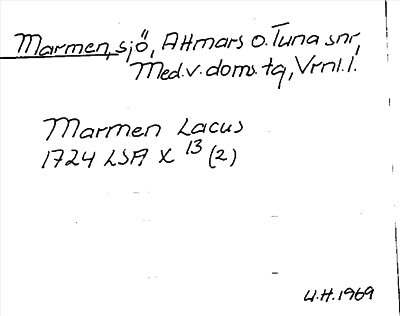 Marmen, sjö, Attmars o. Tuna snr,
Med. v. doms. tg, Vrnl. l.
Marmen Lacus
1724 LSA X 13 (2)
U.H. 1969